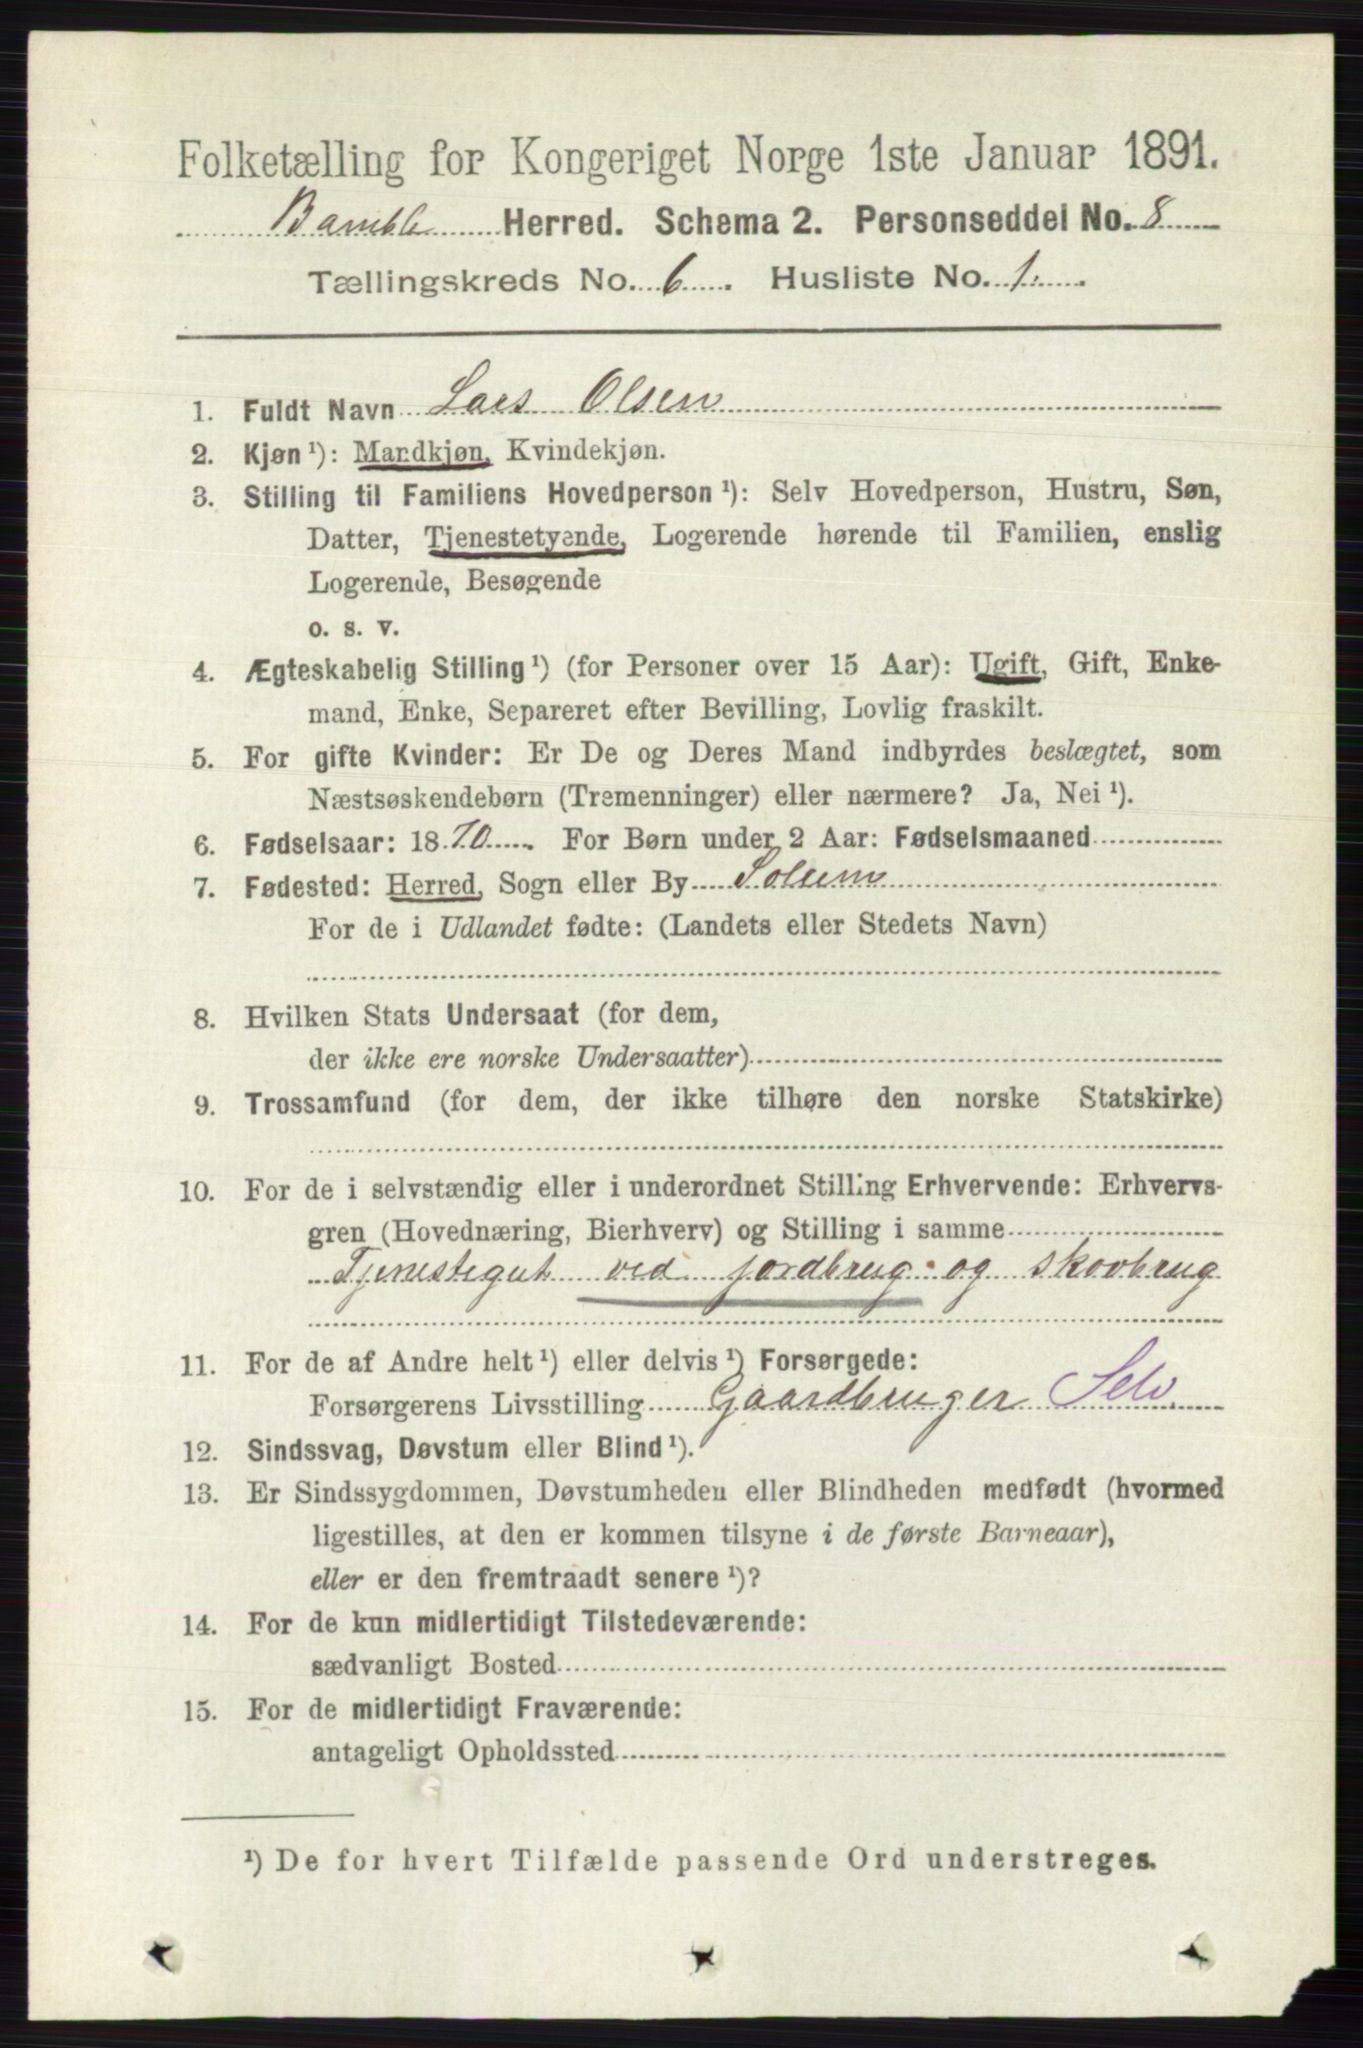 Folketælling for Kongeriget Norge 1ste Januar 1891.
Bamble Herred. Schema 2. Personseddel No. 8
Tællingskreds No. 6. Husliste No. 1.
1. Fuldt Navn Lars Olsen
2. Kjøn¹): Mandkjøn, Kvindekjøn.
3. Stilling til Familiens Hovedperson¹): Selv Hovedperson, Hustru, Søn,
Datter, Tjenestetyende, Logerende hørende til Familien, enslig
Logerende, Besøgende
o. s. v.
4. Ægteskabelig Stilling¹) (for Personer over 15 Aar): Ugift, Gift, Enke-
mand, Enke, Separeret efter Bevilling, Lovlig fraskilt.
5. For gifte Kvinder: Er De og Deres Mand indbyrdes beslægtet, som
Næstsøskendebørn (Tremenninger) eller nærmere? Ja, Nei¹).
6. Fødselsaar: 1870. For Børn under 2 Aar: Fødselsmaaned
7. Fødested: Herred, Sogn eller By Solum
For de i Udlandet fødte: (Landets eller Stedets Navn)
8. Hvilken Stats Undersaat (for dem,
der ikke ere norske Undersaatter)
9. Trossamfund (for dem, der ikke tilhøre den norske Statskirke)
10. For de i selvstændig eller i underordnet Stilling Erhvervende: Erhvervs-
gren (Hovednæring, Bierhverv) og Stilling i samme
Tjenestegut ved jordbrug og skovbrug
11. For de af Andre helt¹) eller delvis¹) Forsørgede:
Forsørgerens Livsstilling Gaardbruger Selv
12. Sindssvag, Døvstum eller Blind¹).
13. Er Sindssygdommen, Døvstumheden eller Blindheden medfødt (hvormed
ligestilles, at den er kommen tilsyne i de første Barneaar),
eller er den fremtraadt senere¹)?
14. For de kun midlertidigt Tilstedeværende:
sædvanligt Bosted
15. For de midlertidigt Fraværende:
antageligt Opholdssted
¹) De for hvert Tilfælde passende Ord understreges.